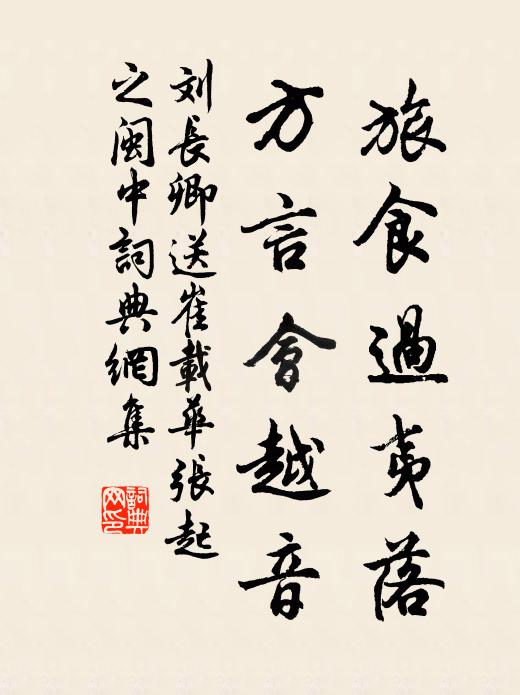 旅食過夷落
方言會越音
刘長卿送崔載華張起
之閩中詞典網集
詞典网印